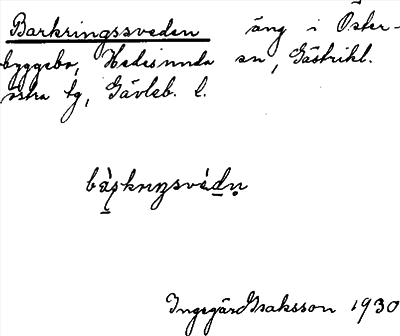 Barkringssveden äng i Öster-
byggebo, Hedesunda sn, Gästrikl.
östra tg, Gävleb. l.
Ingegärd Isaksson 1930